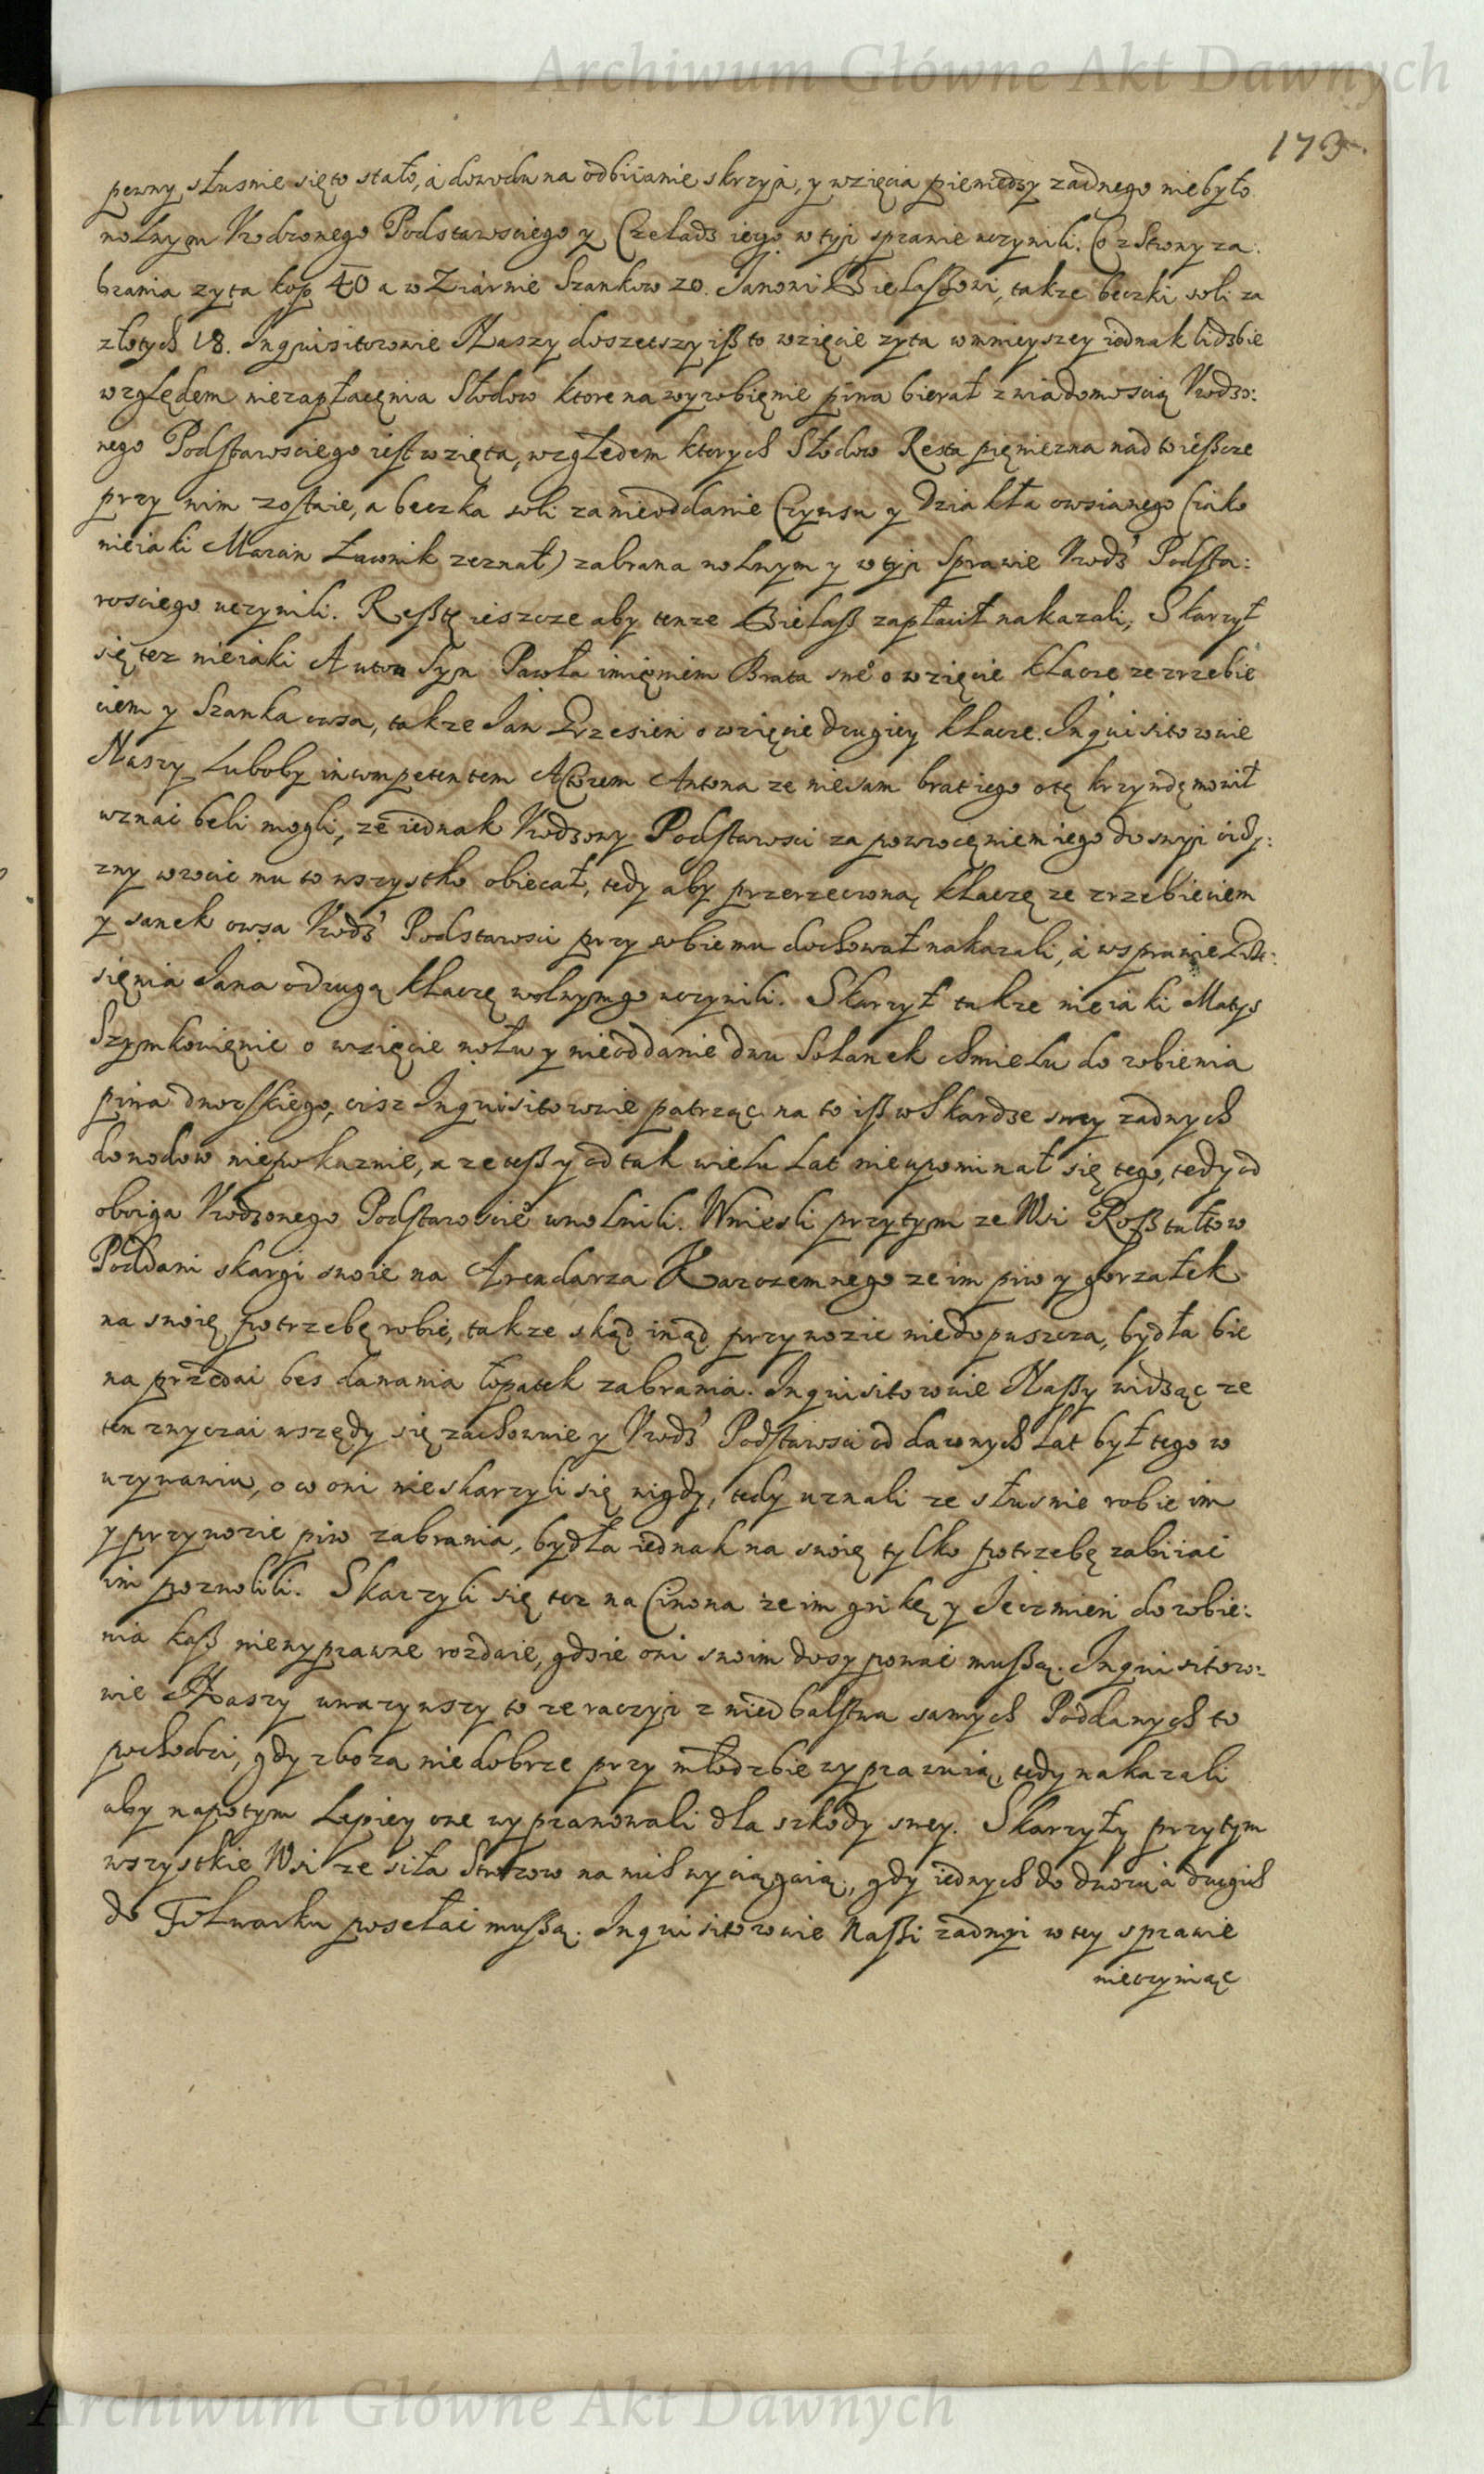 Archiwum Główne Akt Dawnych
173.
pewny słusnie się to stało, a dowodu na odbiianie skrzyń, y wzięcia pieniedzy zadnego niebyło
wolnym Urodzonego Podstarosciego y Czeladz iego w tyi sprawie uczynili. Co z Strony za.
brania zyta kop 40 a w Ziarnie Szankow 20. Janowi Bielaßowi, takze beczki soli za
złotych 18. Inquisitorowie Naszy doszetszy iß to wzięcie zyta w mnieyszey iednak lidzbie
względem niezapłacęnia Słodow ktore na wyrobięnie piwa bierał z wiadomoscią Urodzo:
nego Podstarosciego iest wzięta, względem ktorych Słodow Resta pięniezna nad to ießcze
przy nim zostaie, a beczka soli za nieoddanie Czynsu y Dziakła owsianego (iako
nieiaki Marcin Ławnik zeznał) zabrana wolnym y w tyi Sprawie Urodz Podsta:
rosciego uczynili. Reßtę ieszcze aby tenze Bielaß zapłacił nakazali, Skarzył
się tez nieiaki Anton Syn Pawła imięniem Brata swe o wzięcie kłacze ze zrzebie
ciem y Szanka owsa, takze Jan Brzesień o wzięcie drugiey kłacze. Inquisitorowie
Naszy luboby incompetentem Actorem Antona ze nie sam brat iego o tę krzywdę mowił
uznać beli mogli, ze iednak Urodzony Podstarosci za powrocęniem iego do swyi oiczy:
zny wrocic mu to wszystko obiecał, tedy aby przerzeczoną kłaczę ze zrzebieciem
y sanek owsa Urodz Podstarosci przy sobie mu dochował nakazali, a w sprawie Brze:
sięnia Jana o drugą kłaczę wolnym go uczynili. Skarzył takze nieiaki Matys
Szymkowięnie o wzięcie wołu y nieoddanie dwu Solanek chmielu do robienia
piwa dworskiego, cisz Inquisitorowie patrząc na to iß w Skardze swey zadnych
dowodow niepokazuie, a ze teßz y od tak wielu lat nieupominał się tego, tedy od
oboiga Urodzonego Podstaroscie uwolnili. Wniesli przytym ze Wsi Roßtułtow
Poddani skargi swoie na Arendarza Karczemnego ze im piw y gorzałek
na swoię potrzebę robic, takze skąd inąd przywozic niedopuszcza, bydła bic
na przedai bes dawania łopatek zabrania. Inquisitorowie Naßy widząc ze
ten zwyczai wszędy się zachowuie y Urodz Podstarosci od dawnych lat był tego w
uzywaniu, o co oni nieskarzyli się nigdy, tedy uznali ze słusnie robic im
y przywozic piw zabrania, bydła iednak na swoię tylko potrzebę zabiiac
im pozwolili. Skarzyli się tez na Cinona ze im grikę y Jeczmień do robie:
nia kaß niewyprawne rozdaie, gdzie oni swoim dosypowac mußą. Inquisitoro:
wie Naszy uwazywszy to ze raczyi z niedbalstwa samych Poddanych to
pochodzi, gdy zboza niedobrze przy młodzbie wyprawuią, tedy nakazali
aby napotym lepiey one wyprawowali dla szkody swey. Skarzyły przytym
wszystkie Wsi ze siła Strozow na nich wyciągaią, gdy iednych do dworu a drugich
do Folwarku posełać mußą. Inquisitorowie Naßi zadnyi w tey sprawie
nieczyniąc
Archiwum Główne Akt Dawnych